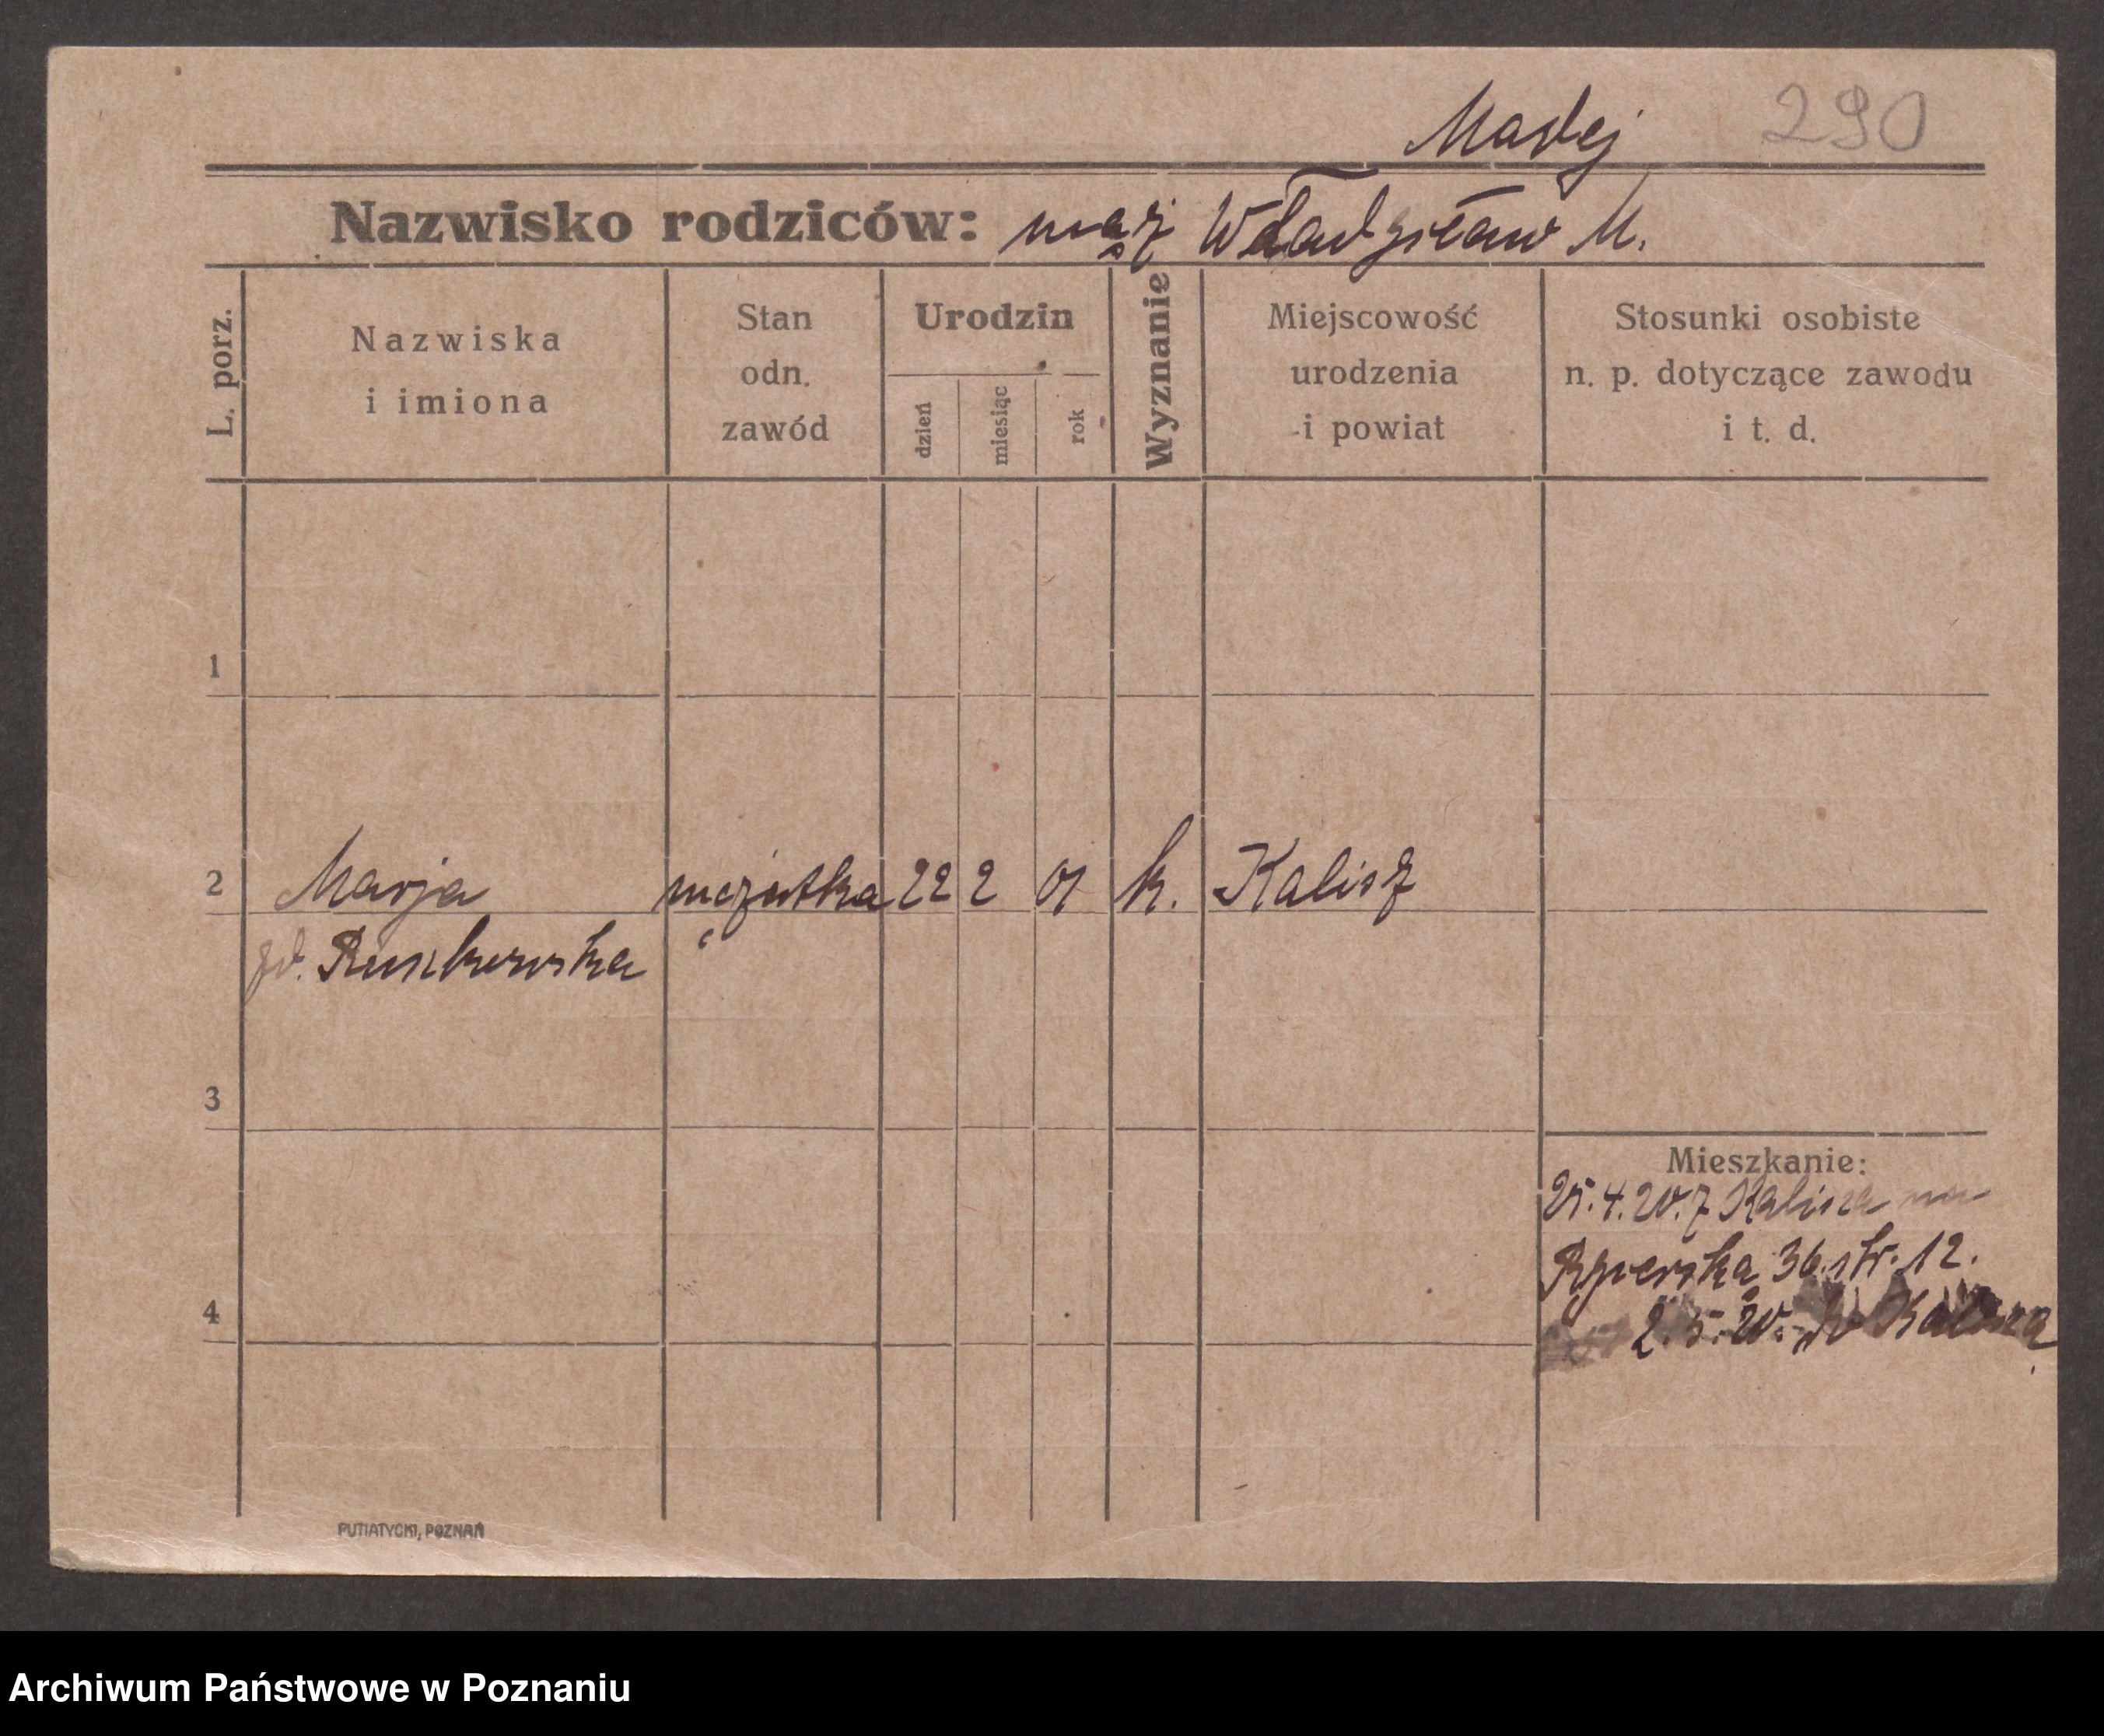 290
Nazwisko rodziców: mąż Władysław M.
L. porz.
Nazwiska
i imiona
Stan
odn.
zawód
Urodzin
dzień
miesiąc
rok
Wyznanie
Miejscowość
urodzenia
i powiat
Stosunki osobiste
n. p. dotyczące zawodu
i t. d.
1
2 Marja mężatka 22 2 01 k. Kalisz
3
Mieszkanie:
4. 20. z Kalisza na
36. 12.
4 2. 5. 20. do Kalisza
PUTIATYCKI, POZNAŃ
Archiwum Państwowe w Poznaniu